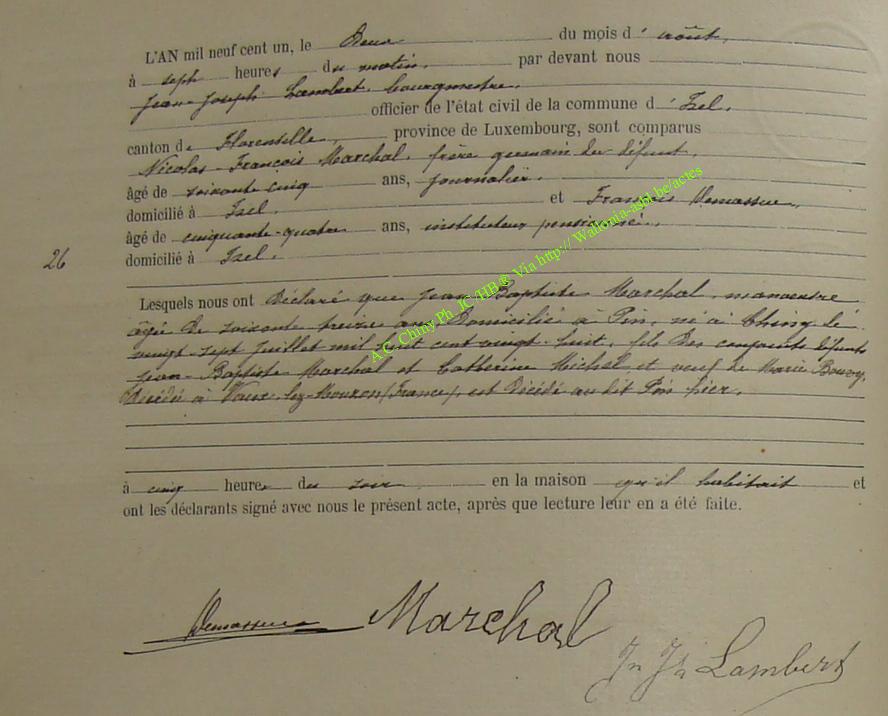 L'AN mil neuf cent un, le deux du mois d'août,
à sept heures du matin, par devant nous
Jean Joseph Lambert, bourgmestre,
officier de l'état civil de la commune d'Izel,
canton de Florenville, province de Luxembourg, sont comparus
Nicolas-François Marchal, frère germain du défunt,
âgé de soixante cinq ans, journalier,
domicilié à Izel, et François Demasure,
âgé de cinquante-quatre ans, instituteur pensionné,
26 domicilié à Izel.
Lesquels nous ont déclaré que Jean Baptiste Marchal, manœuvre
âgé de soixante treize ans domicilié à Pin, né à Chiny le
vingt-sept juillet mil huit cent vingt-huit, fils des conjoints défunts
Jean-Baptiste Marchal et Catherine Michel et veuf de Marie
décédée à Vaux-lez-Mouzon (France), est décédé au dit Pin hier,
à cinq heures du soir en la maison qu'il habitait et
ont les déclarants signé avec nous le présent acte, après que lecture leur en a été faite.
Demasure Marchal
Jn Jh Lambert
A.C. Chiny Ph JC /HB® Via http:// Wallonia-asbl.be/actes